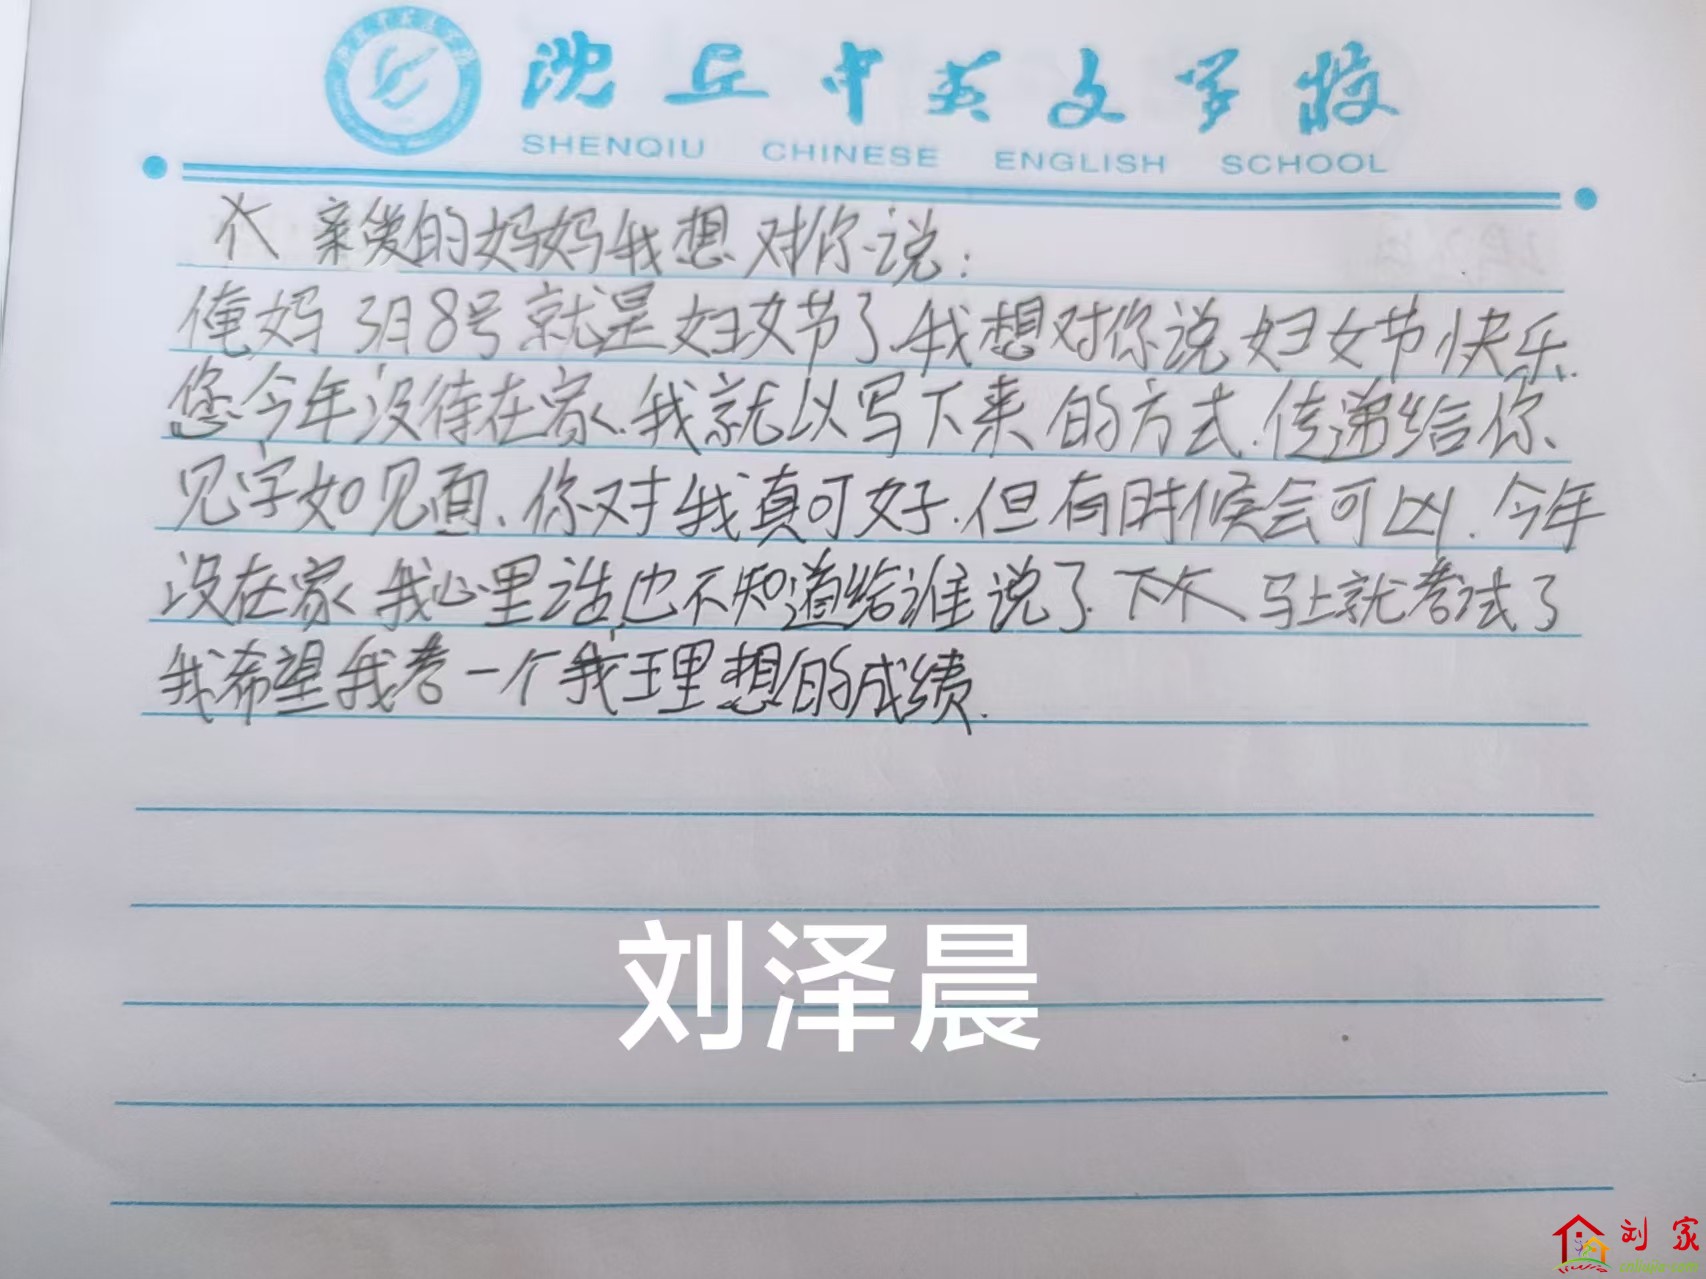 沈丘中英文学校
SHENQIU CHINESE ENGLISH SCHOOL
亲爱的妈妈我想对你说:
俺妈 3月8号就是妇女节了.我想对你说妇女节快乐.
您今年没待在家.我就以写下来的方式.传递给你、
见字如见面、你对我真可好.但有时候会可凶.今年
没在家 我心里话也不知道给谁说了. 马上就考试了
我希望我考一个我理想的成绩.
刘泽晨
刘家